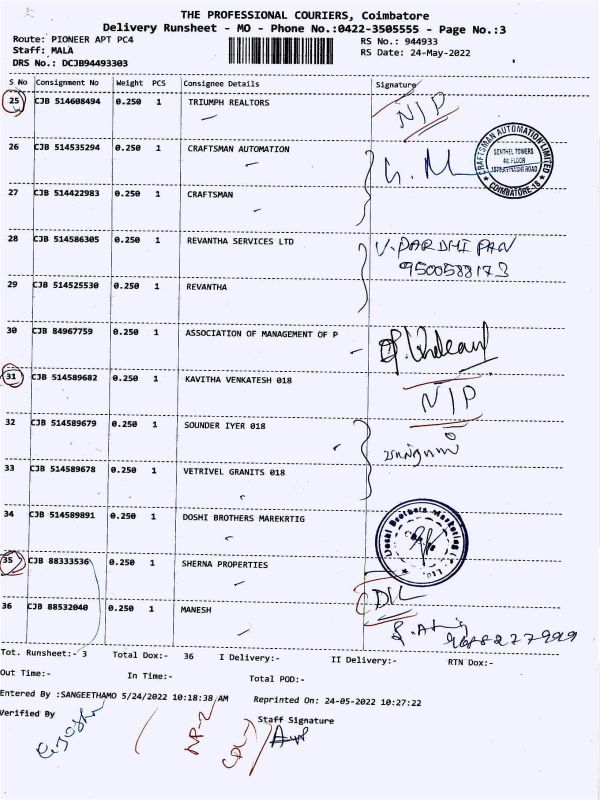 THE PROFESSIONAL COURIERS, Coimbatore
Delivery Runsheet - MO - Phone No.:0422-3505555 - Page No.:3
Route: PIONEER APT PC4 RS No.: 944933
Staff: MALA RS Date: 24-May-2022
DRS No.: DCJB94493303
S No Consignment No Weight PCS Consignee Details Signature
25 CJB 514608494 0.250 1 TRIUMPH REALTORS N/P
26 CJB 514535294 0.250 1 CRAFTSMAN AUTOMATION
CRAFTSMAN AUTOMATION LIMITED
SENTHEL TOWERS
4th FLOOR
1078, AVINASHI ROAD
COIMBATORE-18
27 CJB 514422983 0.250 1 CRAFTSMAN
28 CJB 514586305 0.250 1 REVANTHA SERVICES LTD V. PARDHIPAN
9500588173
29 CJB 514525530 0.250 1 REVANTHA
30 CJB 84967759 0.250 1 ASSOCIATION OF MANAGEMENT OF P
31 CJB 514589682 0.250 1 KAVITHA VENKATESH 018
N/P
32 CJB 514589679 0.250 1 SOUNDER IYER 018
33 CJB 514589678 0.250 1 VETRIVEL GRANITS 018
34 CJB 514589891 0.250 1 DOSHI BROTHERS MAREKRTIG
Doshi Brothers Marketing
35 CJB 88333536 0.250 1 SHERNA PROPERTIES
DL
36 CJB 88532040 0.250 1 MANESH
Tot. Runsheet:- 3 Total Dox:- 36 I Delivery:- II Delivery:- RTN Dox:-
Out Time:- In Time:- Total POD:-
Entered By :SANGEETHAMO 5/24/2022 10:18:38 AM Reprinted On: 24-05-2022 10:27:22
Verified By Staff Signature
NP-2